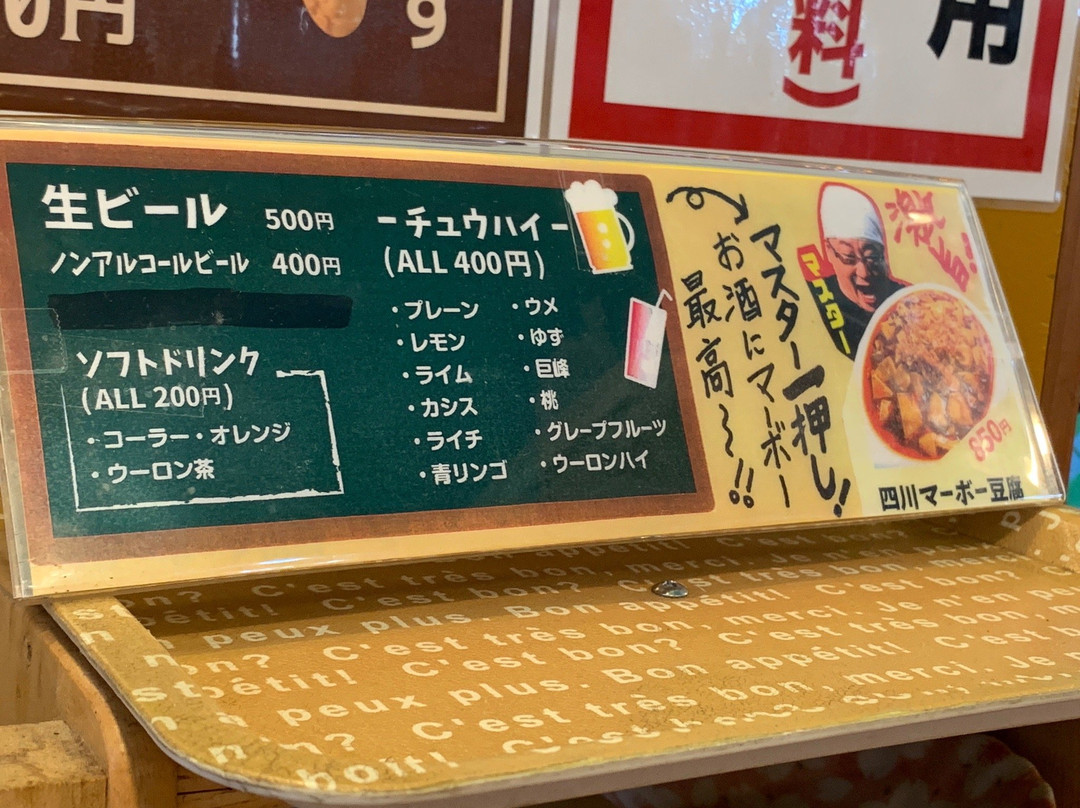 0円
す
料)
用
生ビール 500円
ノンアルコールビール 400円
ソフトドリンク
(ALL 200円)
・コーラー・オレンジ
・ウーロン茶
ーチュウハイー
(ALL 400円)
・プレーン
・レモン
・ライム
・カシス
・ライチ
・青リンゴ
・ウメ
・ゆず
・巨峰
・桃
・グレープフルーツ
・ウーロンハイ
マスター一押し!
お酒にマーボー
最高〜〜!!
マスター
激旨!
850円
四川マーボー豆腐
n? C'est très bon, merci. Je n'en peux
pétit! C'est bon? C'est très bon, merci.
n peux plus. Bon appétit! C'est bon?
on? C'est très bon, merci. Je n'en pe
st pétit! C'est bon? C'est très bon m
n a peux plus. Bon appétit! C'est b
n n? C'est très bon, merci. Je
boit!